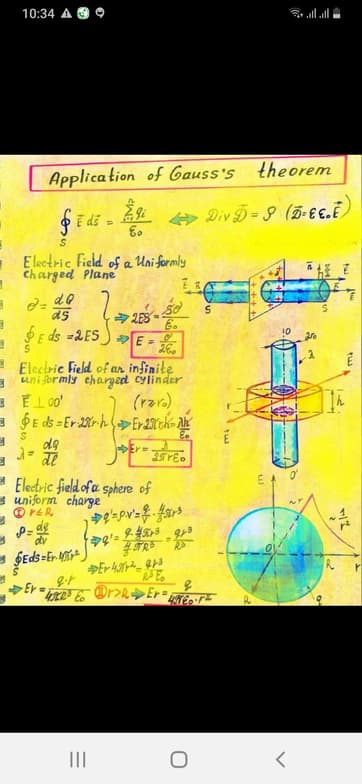 10:34
Application of Gauss's theorem
∮ E⃗ ds⃗ = Σqi / ε₀ ⇔ Div D⃗ = ρ (D⃗ = εε₀E⃗)
S
Electric Field of a Uniformly
charged Plane
= dQ / dS
∮ E ds = 2ES
⇒ E = σ / 2ε₀
Electric Field of an infinite
uniformly charged cylinder
E⃗ ⊥ OO'
(r≥r₀)
∮ E ds = Er·2πr·h
λ = dq / dl
⇒ Er = λ / 2πrε₀
Electric field of a sphere of
uniform charge
① r≤R
ρ = dq / dv
∮ E ds = Er·4πr²
S
⇒ Er 4πr² = qr³ / R³ε₀
⇒ Er = q·r / 4πR³ε₀
r>R ⇒ Er = q / 4πε₀·r²
S
S
E⃗
r₀
λ
E⃗
h
r
E⃗
O'
E
~r
~ 1/r²
O
R
r
R
q